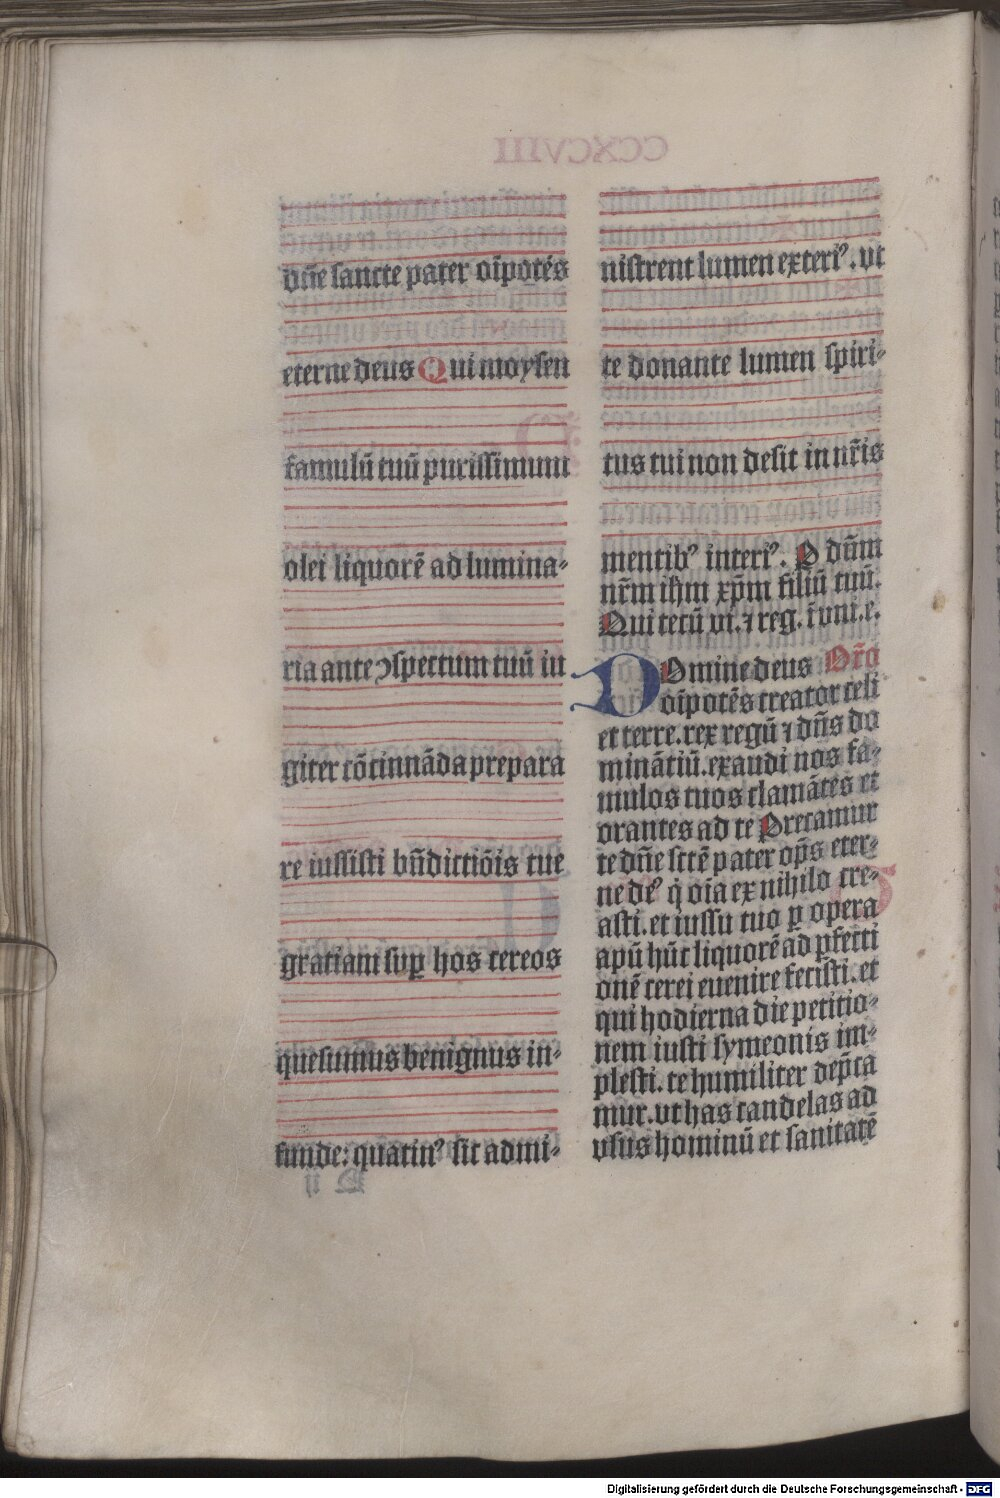 dn̄e sancte pater oīpotēs
eterne deus Qui moysen
famulū tuū purissimum
olei liquorē ad lumina-
ria ante ↄspectum tuū iu
giter cōcinnāda prepara
re iussisti bn̄dictiōis tue
gratiam suꝑ hos cereos
quesumus benignus in-
funde: quatinꝰ sic admi-
nistrent lumen exteriꝰ. ut
te donante lumen spiri-
tus tui non desit in nr̄is
mentibꝰ interiꝰ. P dn̄m
nr̄m ihm xp̄m filiū tuū.
Qui tecū vi. ⁊ reg. ī vni. e.
DOmine deus Or̄o
oīpotēs creator celi
et terre. rex regū ⁊ dn̄s do
minātiū. exaudi nos fa-
mulos tuos clamātes et
orantes ad te Precamur
te dn̄e sctē pater op̄s eter-
ne deꝰ q̇ oīa ex nihilo cre-
asti. et iussu tuo ꝑ opera
apū hūc liquorē ad ꝑfecti
onē cerei euenire fecisti. et
qui hodierna die petitio-
nem iusti symeonis im-
plesti. te humiliter dep̄ca
mur. vt has candelas ad
vsus hominū et sanitatē
Digitalisierung gefördert durch die Deutsche Forschungsgemeinschaft - DFG